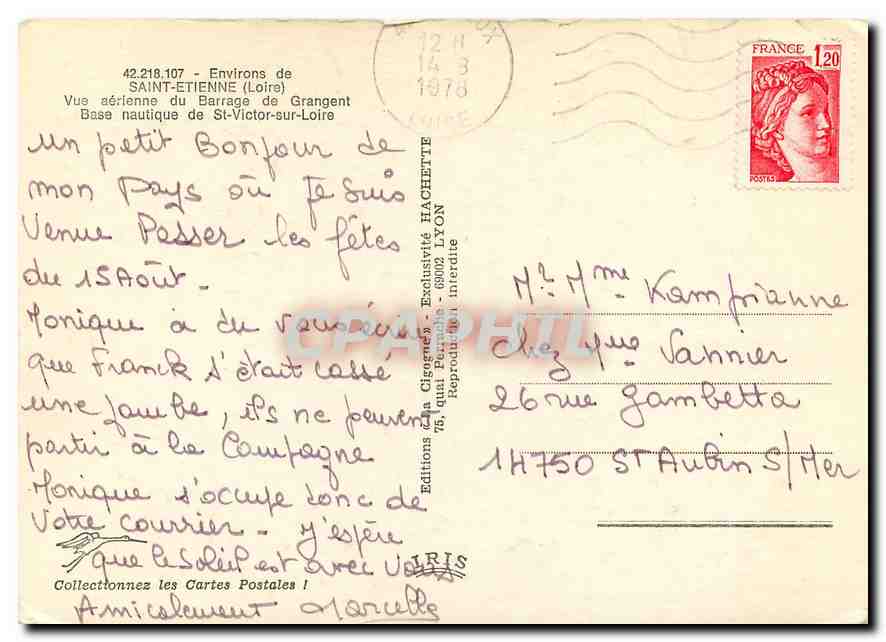 42.218.107 - Environs de
SAINT-ETIENNE (Loire)
Vue aérienne du Barrage de Grangent
Base nautique de St-Victor-sur-Loire
un petit Bonjour de
mon Pays où Je suis
Venue Passer les fêtes
du 15 Août -
Monique a du vous écrire
que Franck s'était cassé
une jambe, ils ne peuvent
partir à la Campagne
Monique s'occupe donc de
Votre courrier - J'espère
que le Soleil est avec Vous
Amicalement Marcelle
Collectionnez les Cartes Postales !
Editions « La Cigogne » - Exclusivité HACHETTE
75, quai Perrache - 69002 LYON
Reproduction interdite
IRIS
CPAPHIL
12 H
14-8
1978
LOIRE
FRANCE 1,20
POSTES
Mr. Mme Kamprianne
chez Mme Vannier
26 rue Gambetta
14750 St Aubin S/Mer